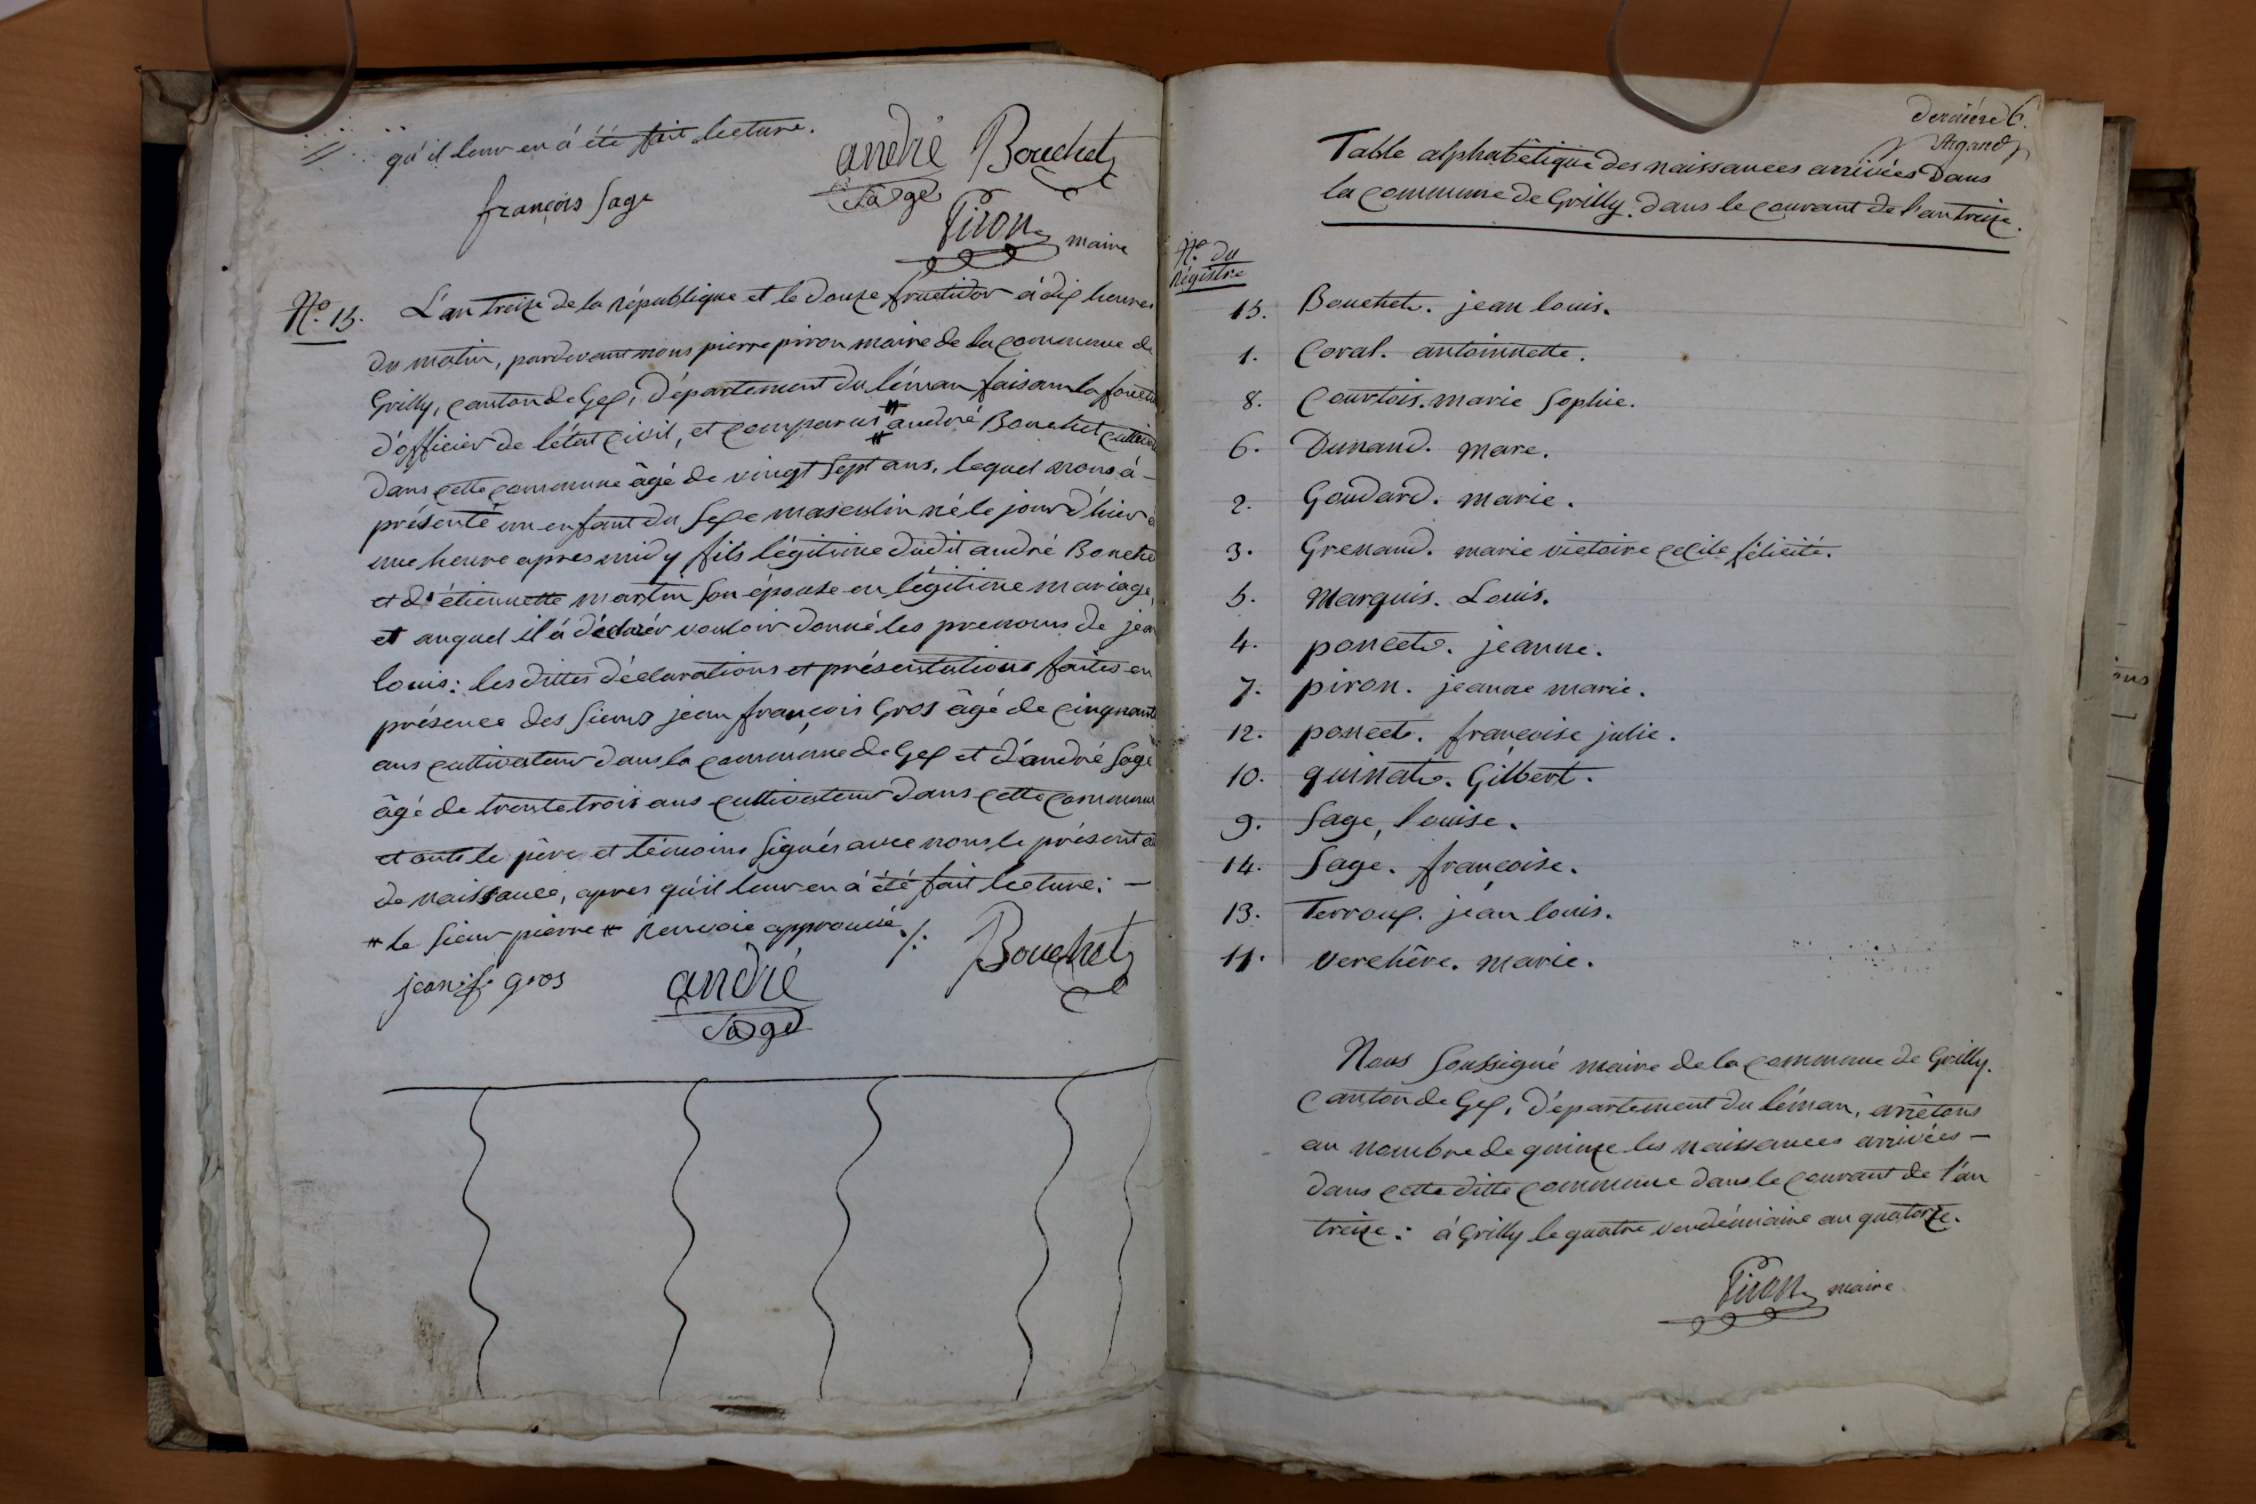 qu'il leur en à été fait lecture.
françois Sage
andré Sage
Bouchet
Piron maire
N.º 15. L'an treize de la république et le douze fructidor à dix heures
du matin, pardevant nous pierre piron maire de la commune de
Grilly, canton de Gex, département du léman faisant la foncti
d'officier de l'état civil, et comparus # # andré Bouchet cultiv
dans cette commune âgé de vingt sept ans, lequel nous à -
présenté un enfant du sexe masculin né le jour d'hier à
une heure apres midy fils légitime dudit andré Bouche
et d'étiennette martin son épouse en légitime mariage,
et auquel il à déclarér vouloir donné les prenoms de jea
louis: les dittes déclarations et présentations faites en
présence des sieurs jean françois Gros âgé de cinquante
ans cultivateur dans la commune de Gex et d'andré Sage
âgé de trente trois ans cultivateur dans cette commune
et ont le père et témoins signés avec nous le présent a
de naissance, apres qu'il leur en à été fait lecture: —
# le sieur pierre # Renvoie approuvé ./.
jean f. gros
andré Sage
Bouchet
dernière 6.
Argand
Table alphabétique des naissances arrivées dans
la commune de Grilly dans le courant de l'an treize.
N.º du
Régistre
15. Bouchet. jean louis.
1. Coral. antoinnette.
8. Courtois. marie Sophie.
6. Dunand. Marc.
2. Goudard. marie.
3. Grenaud. marie victoire cecile félicité.
5. Marquis. Louis.
4. poncet. jeanne.
7. piron. jeanne marie.
12. poncet. françoise julie.
10. quinat. Gilbert.
9. Sage, louise.
14. Sage. françoise.
13. Terroux. jean louis.
11. verchère. marie.
Nous Soussigné maire de la commune de Grilly.
canton de Gex, département du léman, arrêtons
au nombre de quinze les naissances arrivées —
dans cette ditte commune dans le courant de l'an
treize: à Grilly le quatre vendémiaire an quatorze.
Piron maire